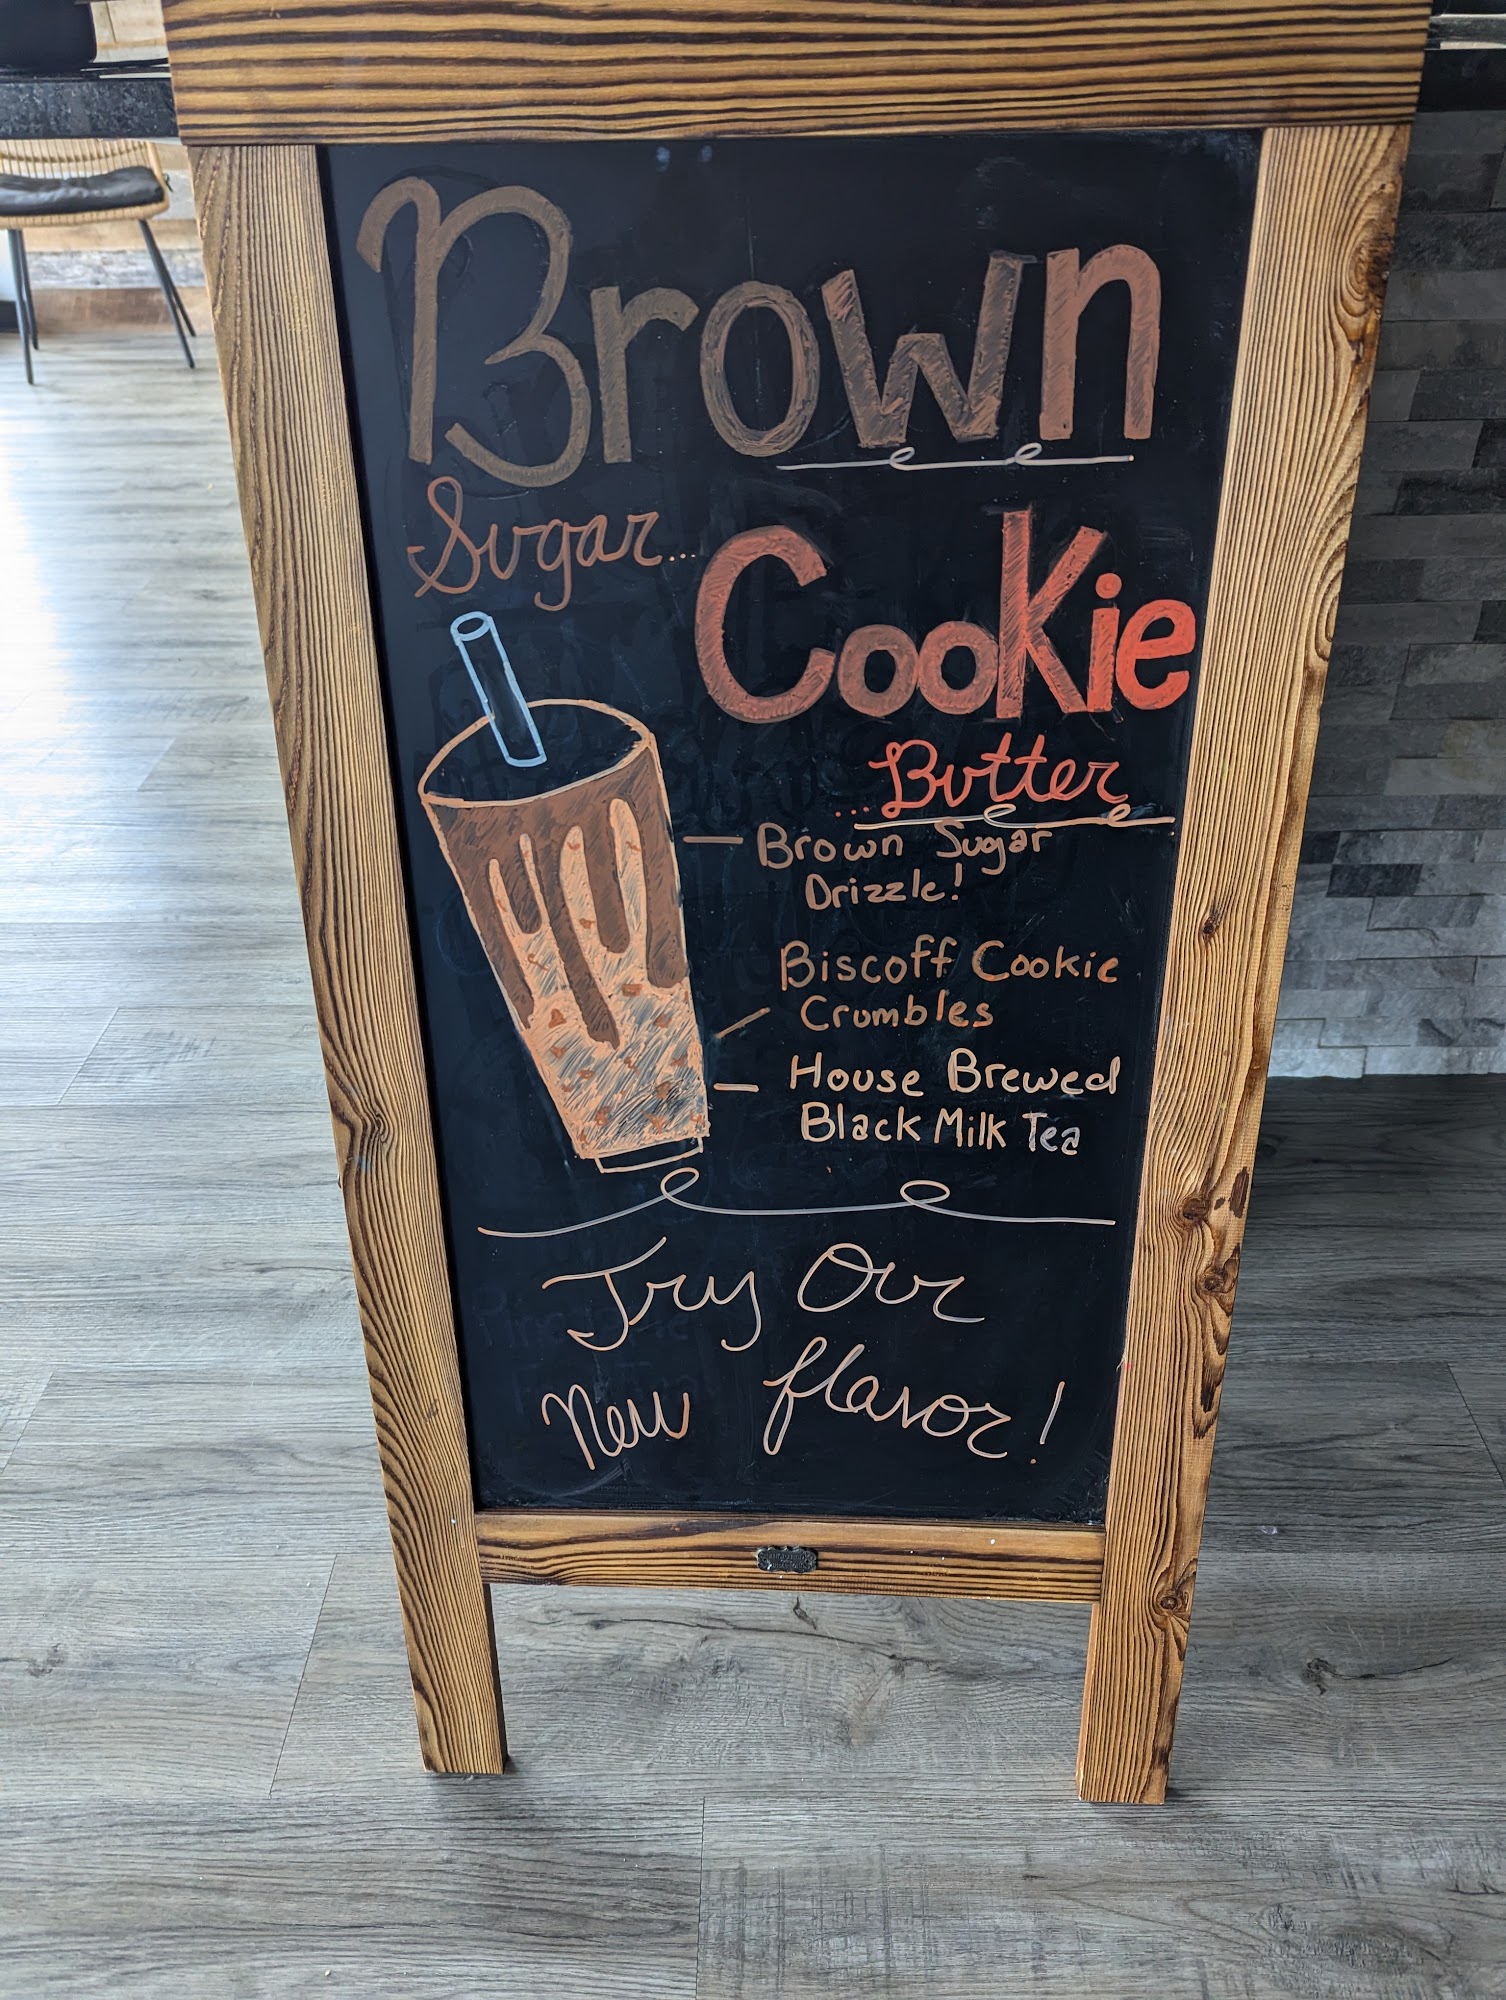 Brown
Sugar...
Cookie
...Butter
Brown Sugar
Drizzle!
Biscoff Cookie
Crumbles
House Brewed
Black Milk Tea
Try Our
New flavor!